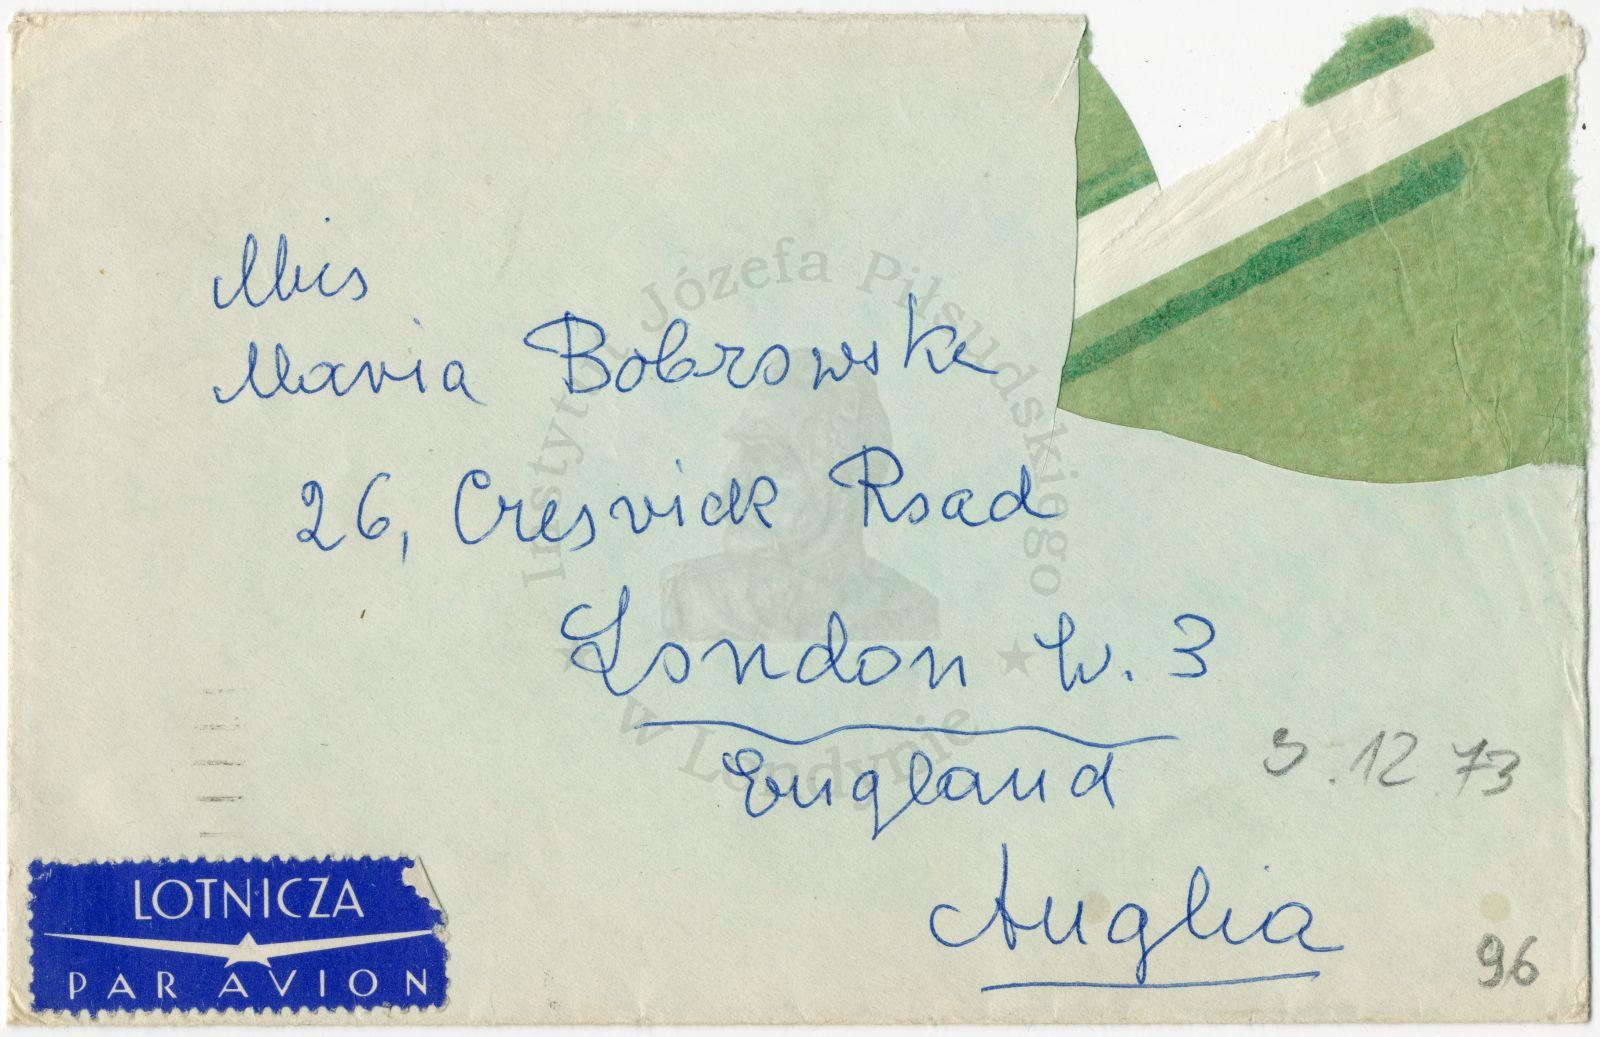 Miss
Maria Bobrowska
26, Cresvick Road
London W. 3
England
Anglia
5.12.73
96
LOTNICZA
PAR AVION
Instytut Józefa Piłsudskiego
w Londynie